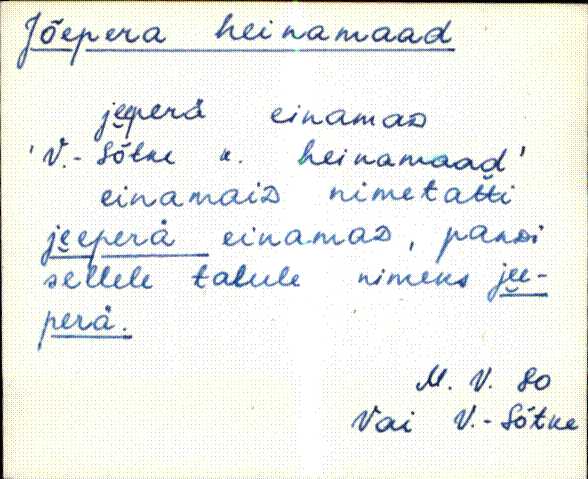 Jõepera heinamaad
je̮e̮perä einamaD
'V.-Sõtke k. heinamaad'
einamaiD nimetat̆ti
je̮e̮perä einamaD, panDi
sellele talule nimeks je̮e̮-
perä.
M. V. 80
Vai V.-Sõtke